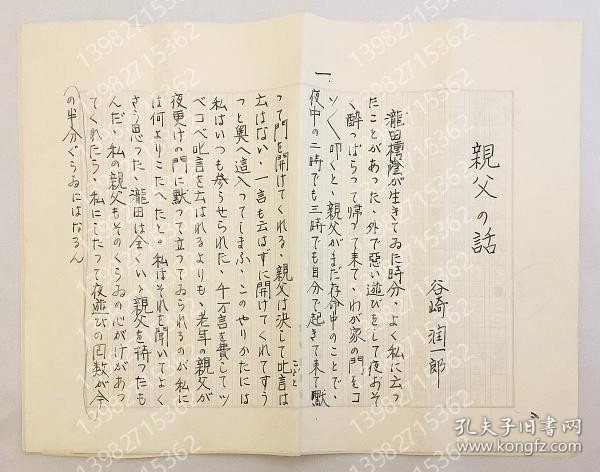 親父の話
谷崎潤一郎
瀧田樗陰が生きてゐた時分、よく私に云つ
たことがあつた、外で惡い遊びをして夜おそ
く酔つぱらつて帰つて来て、わが家の門をコ
ツ〱叩くと、親父がまだ存命中のことで、
一
夜中の二時でも三時でも自分で起きて来て黙
つて門を開けてくれる、親父は決して叱言は
こごと
云はない、一言も云はずに開けてくれてすう
つと奥へ這入つてしまふ、このやりかたには
私はいつも参らせられた、千万言を費してツ
ベコベ叱言を云はれるよりも、老年の親父が
夜更けの門に黙つて立つてゐられるのが、私に
は何よりこたへたと。私はそれを聞いてよく
さう思つた、瀧田は全くいゝ親父を持つたも
んだ、私の親父もそのくらゐの心がけがあつ
てくれたら、私にしたつて夜遊びの回数が今
の半分ぐらゐにはなるん
13982715362
孔夫子旧书网
www.kongfz.com